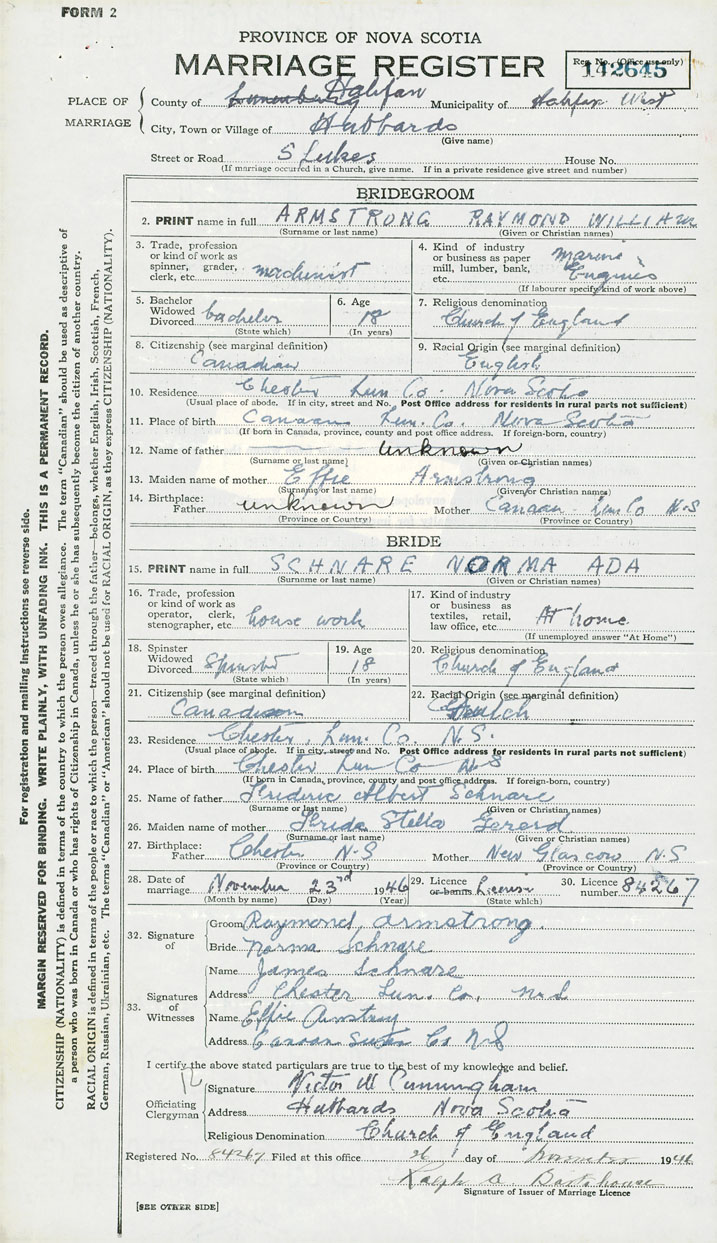 FORM 2
PROVINCE OF NOVA SCOTIA
MARRIAGE REGISTER
Reg. No. (Office use only)
142645
PLACE OF MARRIAGE
County of Lunenburg Halifax Municipality of Halifax West
City, Town or Village of Hubbards
(Give name)
Street or Road S Lukes House No.
(If marriage occurred in a Church, give name. If in a private residence give street and number)
BRIDEGROOM
2. PRINT name in full ARMSTRONG RAYMOND WILLIAM
(Surname or last name) (Given or Christian names)
3. Trade, profession or kind of work as spinner, grader, clerk, etc. machinist
4. Kind of industry or business as paper mill, lumber, bank, etc. marine Engines
(If labourer specify kind of work above)
5. Bachelor Widowed Divorced bachelor
(State which)
6. Age 18
(In years)
7. Religious denomination
Church of England
8. Citizenship (see marginal definition)
Canadian
9. Racial Origin (see marginal definition)
English
10. Residence Chester Lun. Co. Nova Scotia
(Usual place of abode. If in city, street and No. Post Office address for residents in rural parts not sufficient)
11. Place of birth Canaan Lun. Co. Nova Scotia
(If born in Canada, province, county and post office address. If foreign-born, country)
12. Name of father unknown
(Surname or last name) (Given or Christian names)
13. Maiden name of mother Effie Armstrong
(Surname or last name) (Given or Christian names)
14. Birthplace: Father unknown Mother Canaan Lun Co N-S
(Province or Country) (Province or Country)
BRIDE
15. PRINT name in full SCHNARE NORMA ADA
(Surname or last name) (Given or Christian names)
16. Trade, profession or kind of work as operator, clerk, stenographer, etc. house work
17. Kind of industry or business as textiles, retail, law office, etc. At home
(If unemployed answer "At Home")
18. Spinster Widowed Divorced Spinster
(State which)
19. Age 18
(In years)
20. Religious denomination
Church of England
21. Citizenship (see marginal definition)
Canadian
22. Racial Origin (see marginal definition)
23. Residence Chester, Lun. Co. N.S.
(Usual place of abode. If in city, street and No. Post Office address for residents in rural parts not sufficient)
24. Place of birth Chester Lun Co N-S
(If born in Canada, province, county and post office address. If foreign-born, country)
25. Name of father Frideric Albert Schnare
(Surname or last name) (Given or Christian names)
26. Maiden name of mother Frida Stella Gererd
(Surname or last name) (Given or Christian names)
27. Birthplace: Father Chester N-S Mother New Glascow N.S
(Province or Country) (Province or Country)
28. Date of marriage November 23rd 1946
(Month by name) (Day) (Year)
29. Licence or banns License
(State which)
30. Licence number 84267
32. Signature of
Groom Raymond Armstrong.
Bride Norma Schnare
33. Signatures of Witnesses
Name James Schnare
Address Chester Lun. Co. N.S
Name Effie Armstrong
Address Canaan Co N S
I certify the above stated particulars are true to the best of my knowledge and belief.
Officiating Clergyman
Signature Victor W Cunningham
Address Hubbards Nova Scotia
Religious Denomination Church of England
Registered No. 84267 Filed at this office 26 day of November 1946
Ralph A.
Signature of Issuer of Marriage Licence
[SEE OTHER SIDE]
For registration and mailing instructions see reverse side.
MARGIN RESERVED FOR BINDING. WRITE PLAINLY, WITH UNFADING INK. THIS IS A PERMANENT RECORD.
CITIZENSHIP (NATIONALITY) is defined in terms of the country to which the person owes allegiance. The term "Canadian" should be used as descriptive of
a person who was born in Canada or who has rights of Citizenship in Canada, unless he or she has subsequently become the citizen of another country.
RACIAL ORIGIN is defined in terms of the people or race to which the person—traced through the father—belongs, whether English, Irish, Scottish, French,
German, Russian, Ukrainian, etc. The terms "Canadian" or "American" should not be used for RACIAL ORIGIN, as they express CITIZENSHIP (NATIONALITY).